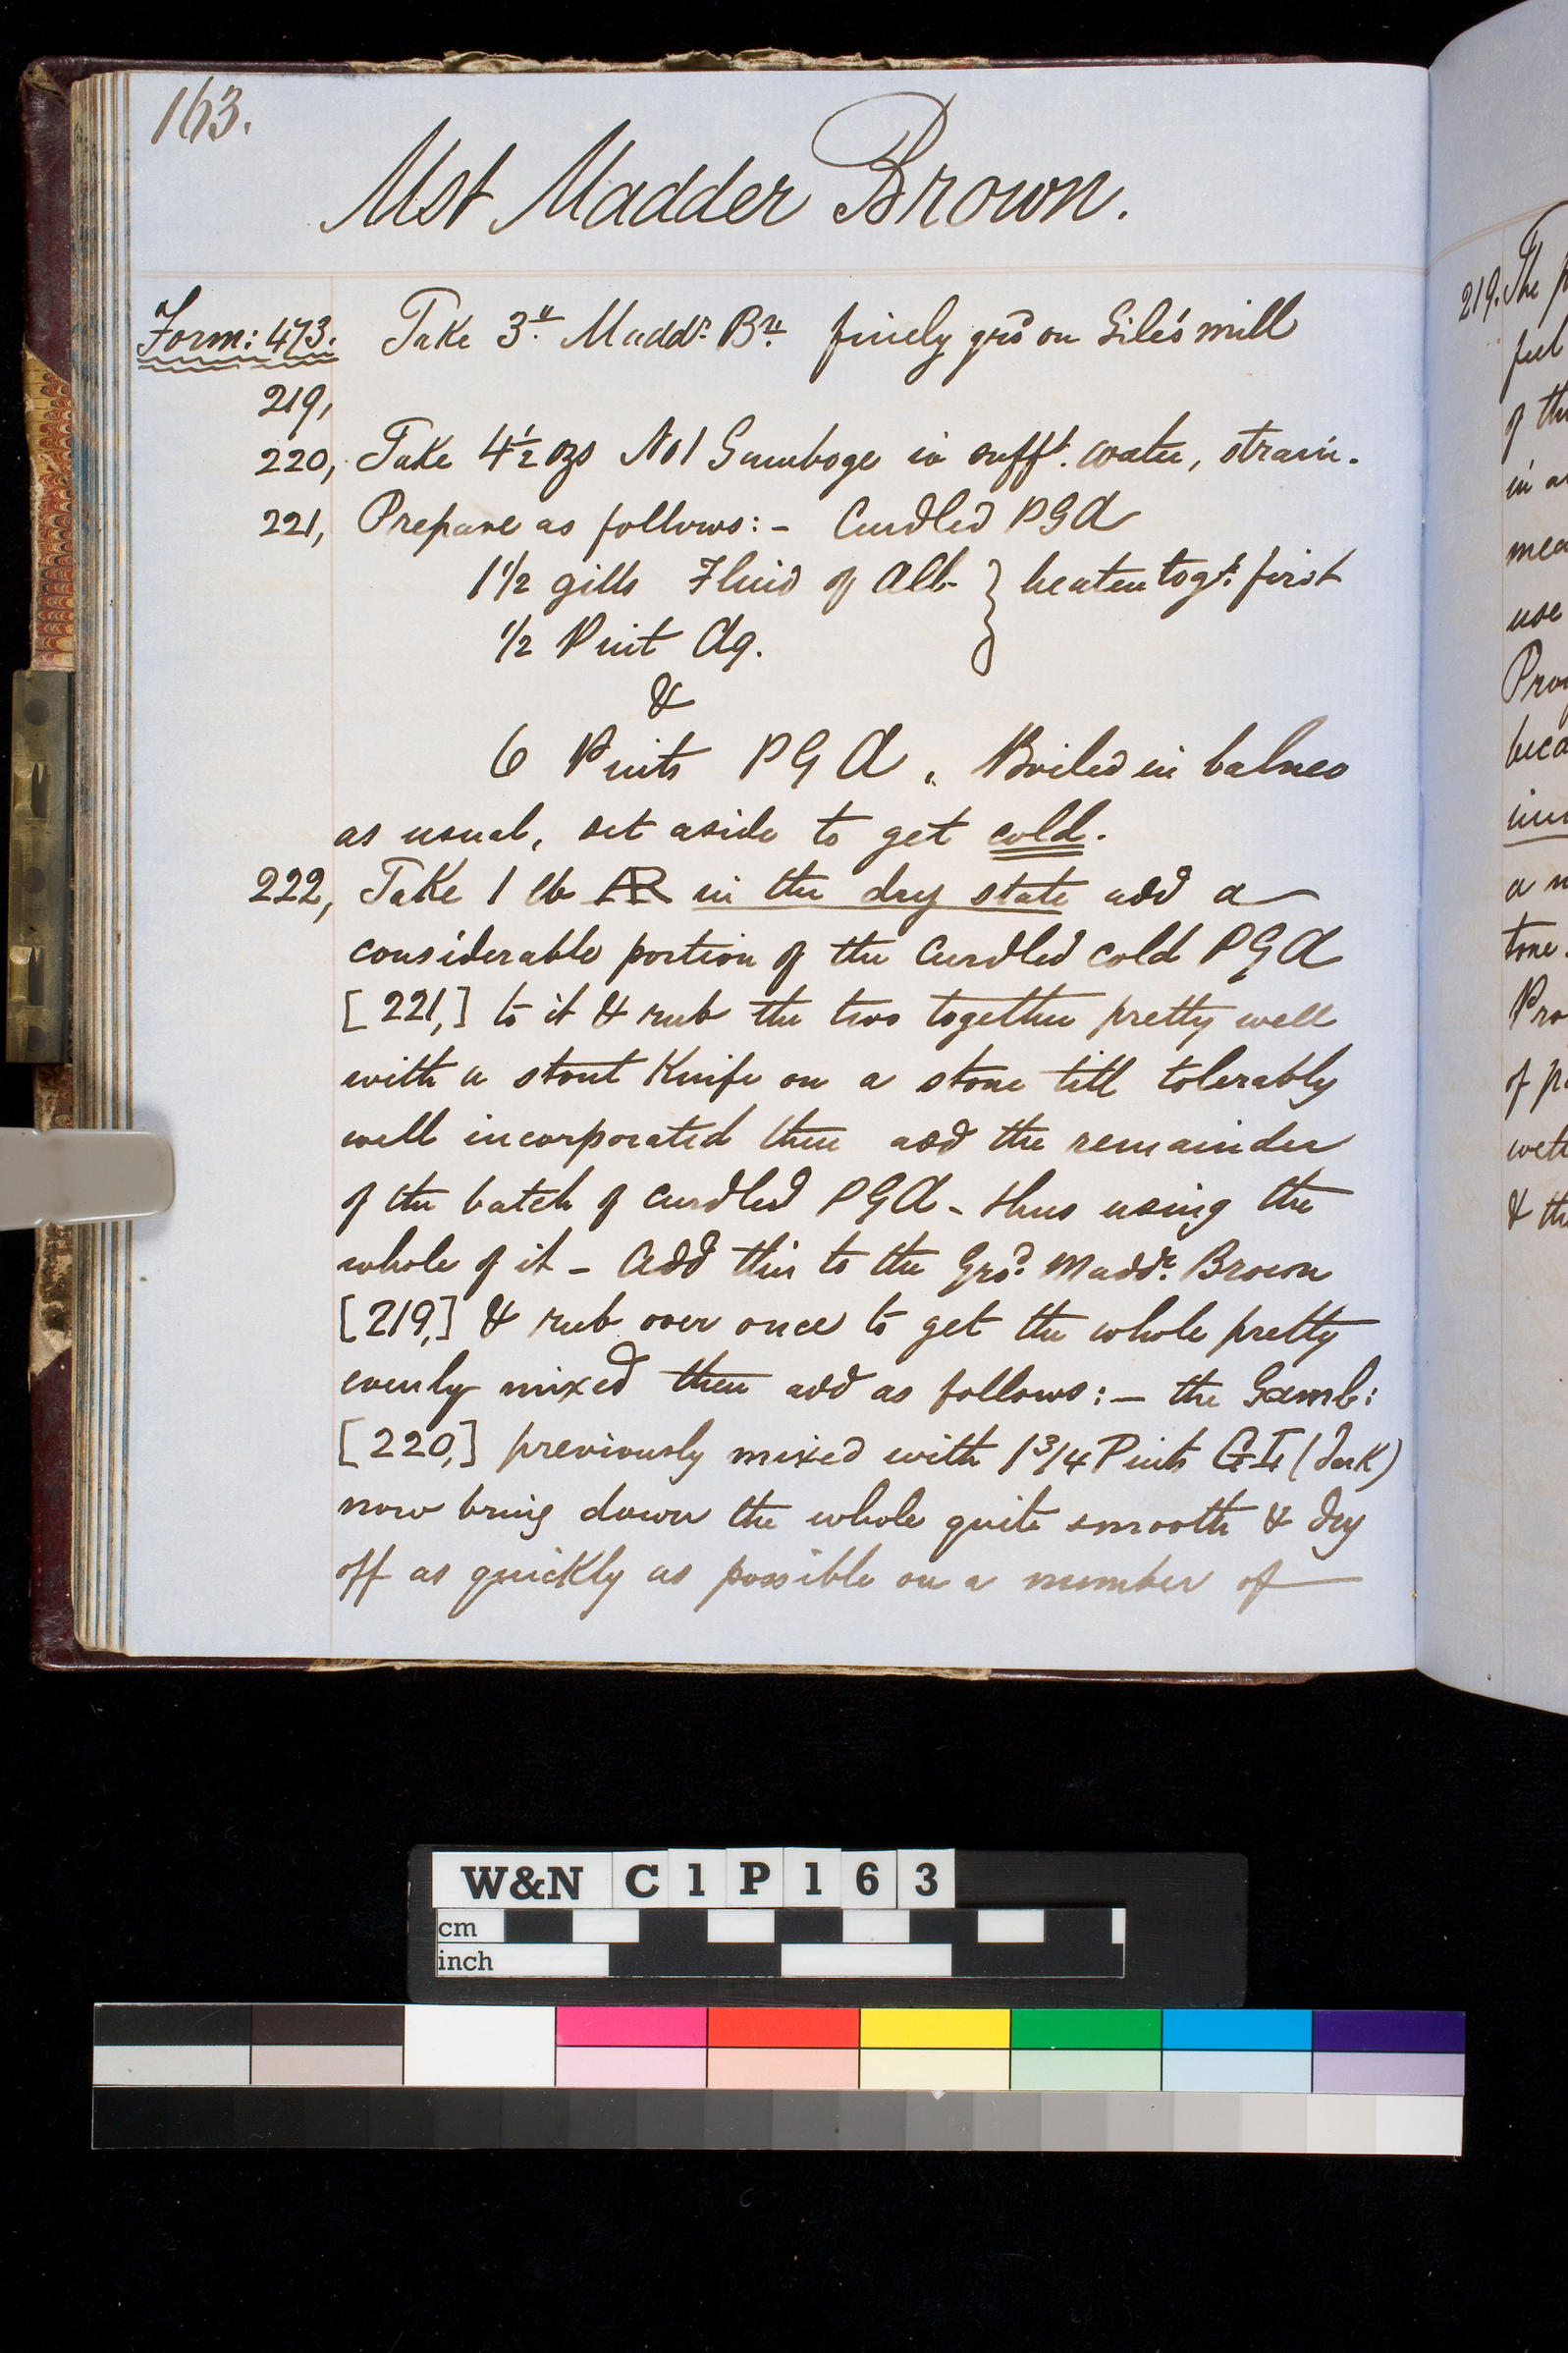 163.
Mst Madder Brown.
Form: 473. Take 3 lb. Maddr. Bn. finely grd on Giles mill
219,
220, Take 4½ ozs No1 Gamboge in sufft. water, strain.
221, Prepare as follows:- Curdled PGA
1½ gills Fluid of Alb } beaten togr. first
½ Pint Aq.
&
6 Pints PGA. Boiled in balneo
as usual, set aside to get cold.
222, Take 1 lb AR in the dry state add a
considerable portion of the Curdled cold PGA
[221,] to it & rub the two together pretty well
with a stout Knife on a stone till tolerably
well incorporated then add the remainder
of the batch of curdled PGA - thus using the
whole of it - Add this to the Grd. Maddr. Brown
[219,] & rub over once to get the whole pretty
evenly mixed then add as follows:- the Gamb:
[220,] previously mixed with 1 3/4 Pints (dark)
now bring down the whole quite smooth & dry
off as quickly as possible on a number of
219. The
of th
in
mea
use
a
tone.
of
& th
W&N C1P163
cm
inch